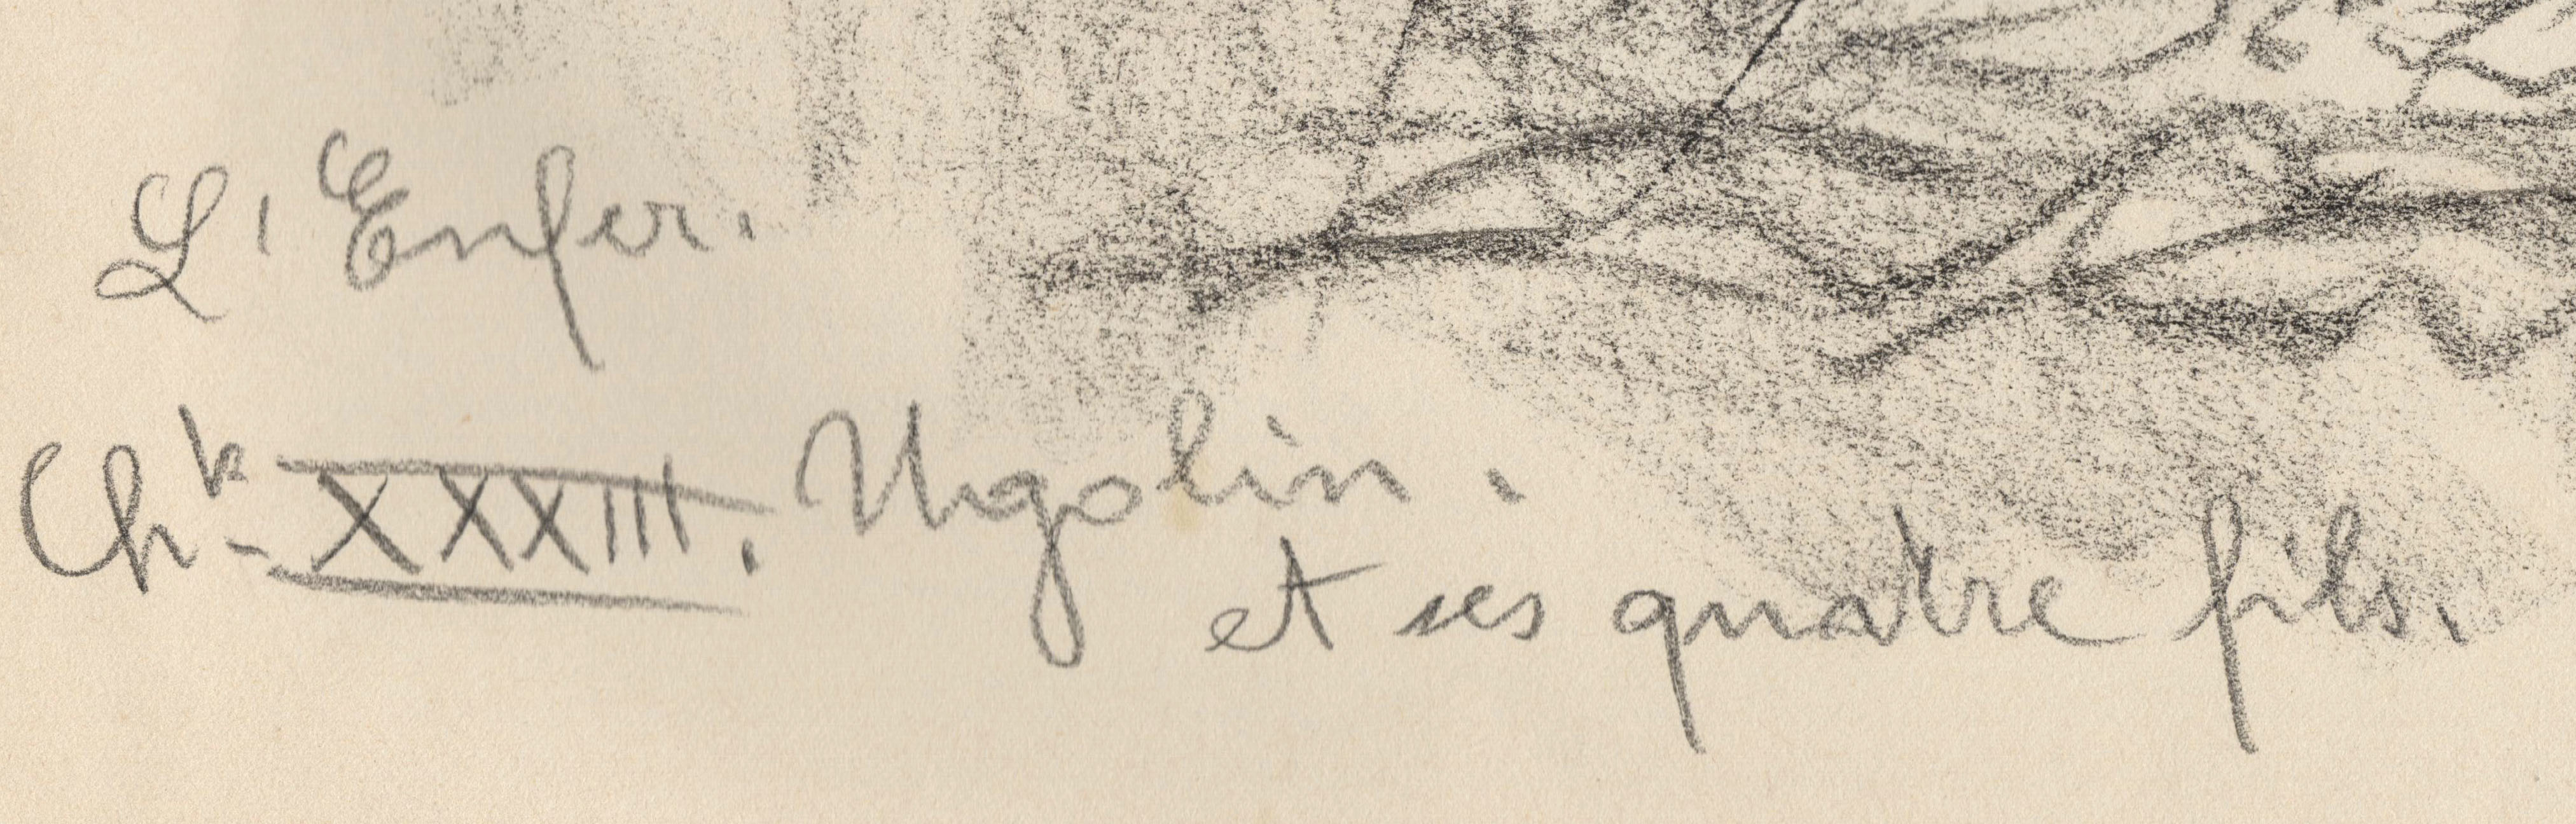 L'Enfer.
Chᵗ XXXIII. Ugolin.
et ses quatre fils.